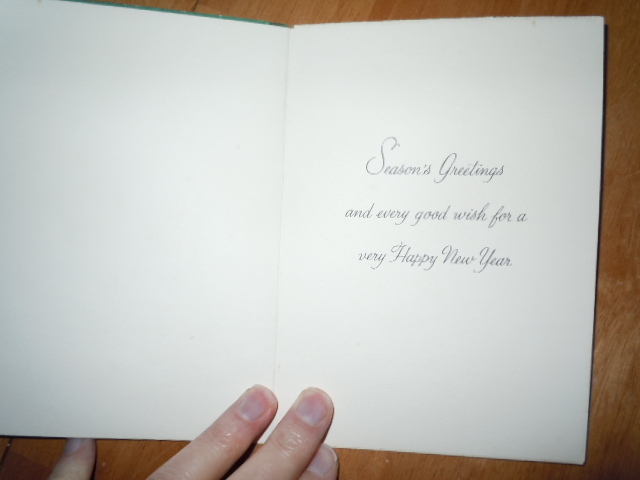 Season's Greetings
and every good wish for a
very Happy New Year.